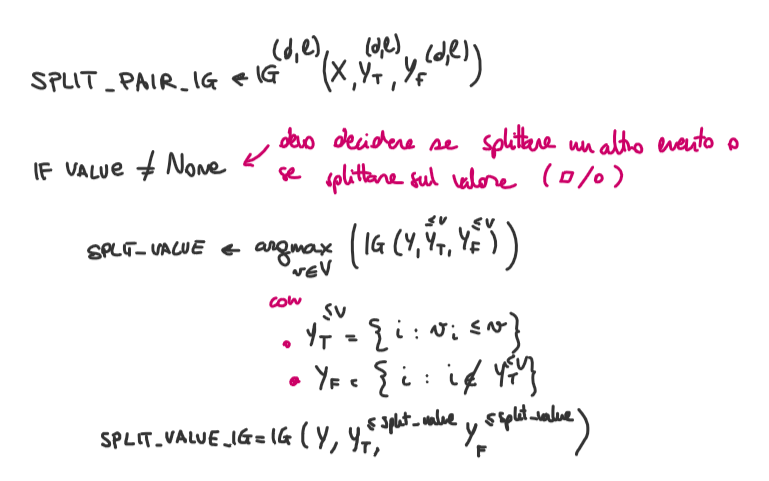 SPLIT_PAIR_IG ← IG^(d,e) (X, Y_T^(d,e), Y_F^(d,e))
devo decidere se splittare un altro evento o
IF VALUE ≠ None ← se splittare sul valore (□/o)
SPLIT_VALUE ← argmax_{v∈V} (IG (Y, Y_T^{≤v}, Y_F^{≤v}))
con
• Y_T^{≤v} = {i : v_i ≤ v}
• Y_F = {i : i ∉ Y_T^{≤v}}
SPLIT_VALUE_IG = IG (Y, Y_T^{≤split_value}, Y_F^{≤split_value})